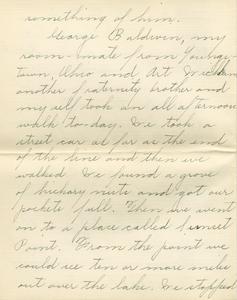 something of him.
George Baldwin, my
room-mate from Youngs-
town, Ohio and Art
another fraternity brother and
myself took an all afternoon
walk to-day. We took a
street car as far as the end
of the line and then we
walked. We found a grove
of hickory nuts and got our
pockets full. Then we went
on to a place called Sunset
Point. From the point we
could see ten or more miles
out over the lake. We stopped